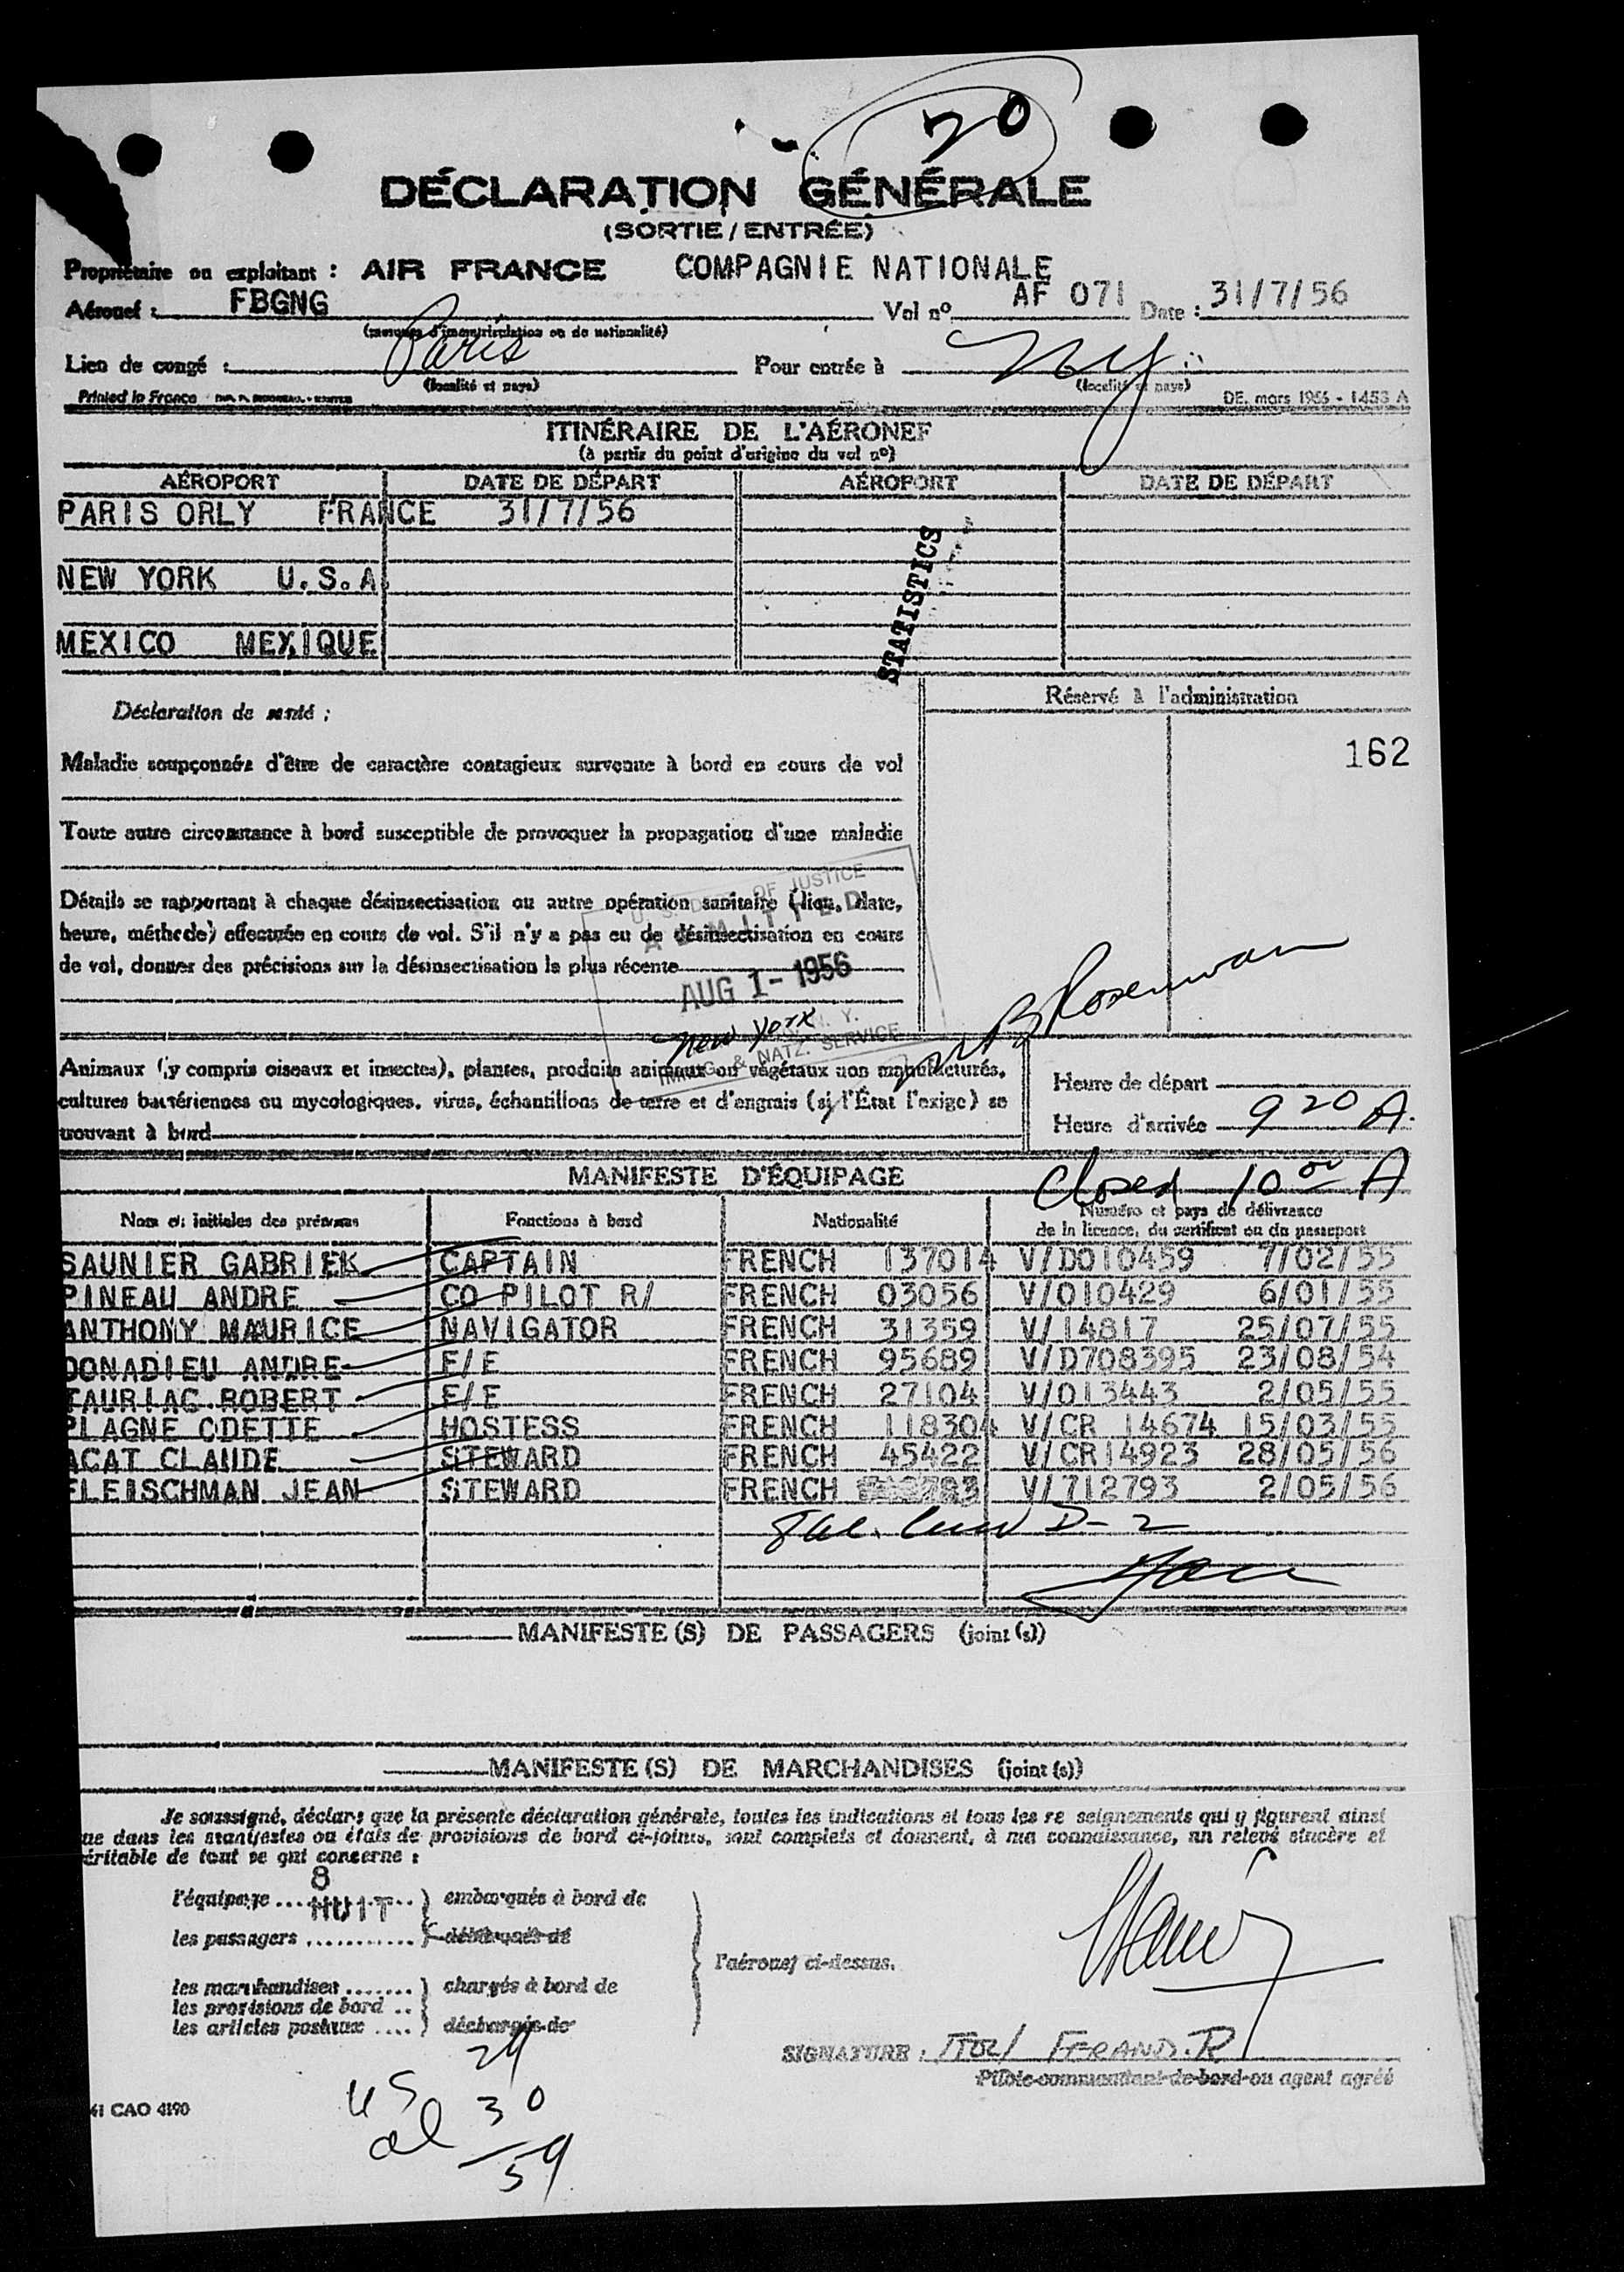 70
DÉCLARATION GÉNÉRALE
(SORTIE / ENTRÉE)
Propriétaire ou exploitant : AIR FRANCE COMPAGNIE NATIONALE
Aéronef : FBGNG Vol nº AF 071 Date : 31/7/56
(marques d'immatriculation ou de nationalité)
Lieu de congé : Paris Pour entrée à NY
(localité et pays) (localité et pays)
Printed in France DE. mars 1956 - 1453 A
ITINÉRAIRE DE L'AÉRONEF
(à partir du point d'origine du vol nº)
AÉROPORT DATE DE DÉPART AÉROPORT DATE DE DÉPART
PARIS ORLY FRANCE 31/7/56
NEW YORK U.S.A.
MEXICO MEXIQUE
STATISTICS
Déclaration de santé :
Réservé à l'administration
162
Maladie soupçonnée d'être de caractère contagieux survenue à bord en cours de vol
Toute autre circonstance à bord susceptible de provoquer la propagation d'une maladie
Détails se rapportant à chaque désinsectisation ou autre opération sanitaire (lieu, date,
heure, méthode) effectuée en cours de vol. S'il n'y a pas eu de désinsectisation en cours
de vol, donner des précisions sur la désinsectisation la plus récente
U. S. DEPT. OF JUSTICE
ADMITTED
AUG 1 - 1956
New York N. Y.
IMMIG. & NATZ. SERVICE
B Rosenwan
Animaux (y compris oiseaux et insectes), plantes, produits animaux ou végétaux non manufacturés,
cultures bactériennes ou mycologiques, virus, échantillons de terre et d'engrais (si l'État l'exige) se
trouvant à bord
Heure de départ
Heure d'arrivée 9 20 A.
MANIFESTE D'ÉQUIPAGE Closed 10 00 A
Nom et initiales des prénoms Fonctions à bord Nationalité Numéro et pays de délivrance
de la licence, du certificat ou du passeport
SAUNIER GABRIEL CAPTAIN FRENCH 137014 V/D010459 7/02/55
PINEAU ANDRE CO PILOT R/ FRENCH 03056 V/010429 6/01/55
ANTHONY MAURICE NAVIGATOR FRENCH 31359 V/14817 25/07/55
DONADIEU ANDRE F/E FRENCH 95689 V/D708395 23/08/54
TAURIAC ROBERT F/E FRENCH 27104 V/013443 2/05/55
PLAGNE ODETTE HOSTESS FRENCH 118304 V/CR 14674 15/03/55
ACAT CLAUDE STEWARD FRENCH 45422 V/CR14923 28/05/56
FLEISCHMAN JEAN STEWARD FRENCH V/712793 2/05/56
D-2
MANIFESTE (S) DE PASSAGERS (joint (s))
MANIFESTE (S) DE MARCHANDISES (joint (s))
Je soussigné, déclare que la présente déclaration générale, toutes les indications et tous les re seignements qui y figurent ainsi
ue dans les manifestes ou états de provisions de bord ci-joints, sont complets et donnent, à ma connaissance, un relevé sincère et
éritable de tout ce qui concerne :
8
l'équipage ... HUIT .. embarqués à bord de
les passagers ........... débarqués de
l'aéronef ci-dessus.
les marchandises ....... chargés à bord de
les provisions de bord ..
les articles postaux .... déchargés de
SIGNATURE : FERAND. R
Pilote commandant de bord ou agent agréé
29
US
al 30
59
41 CAO 4190